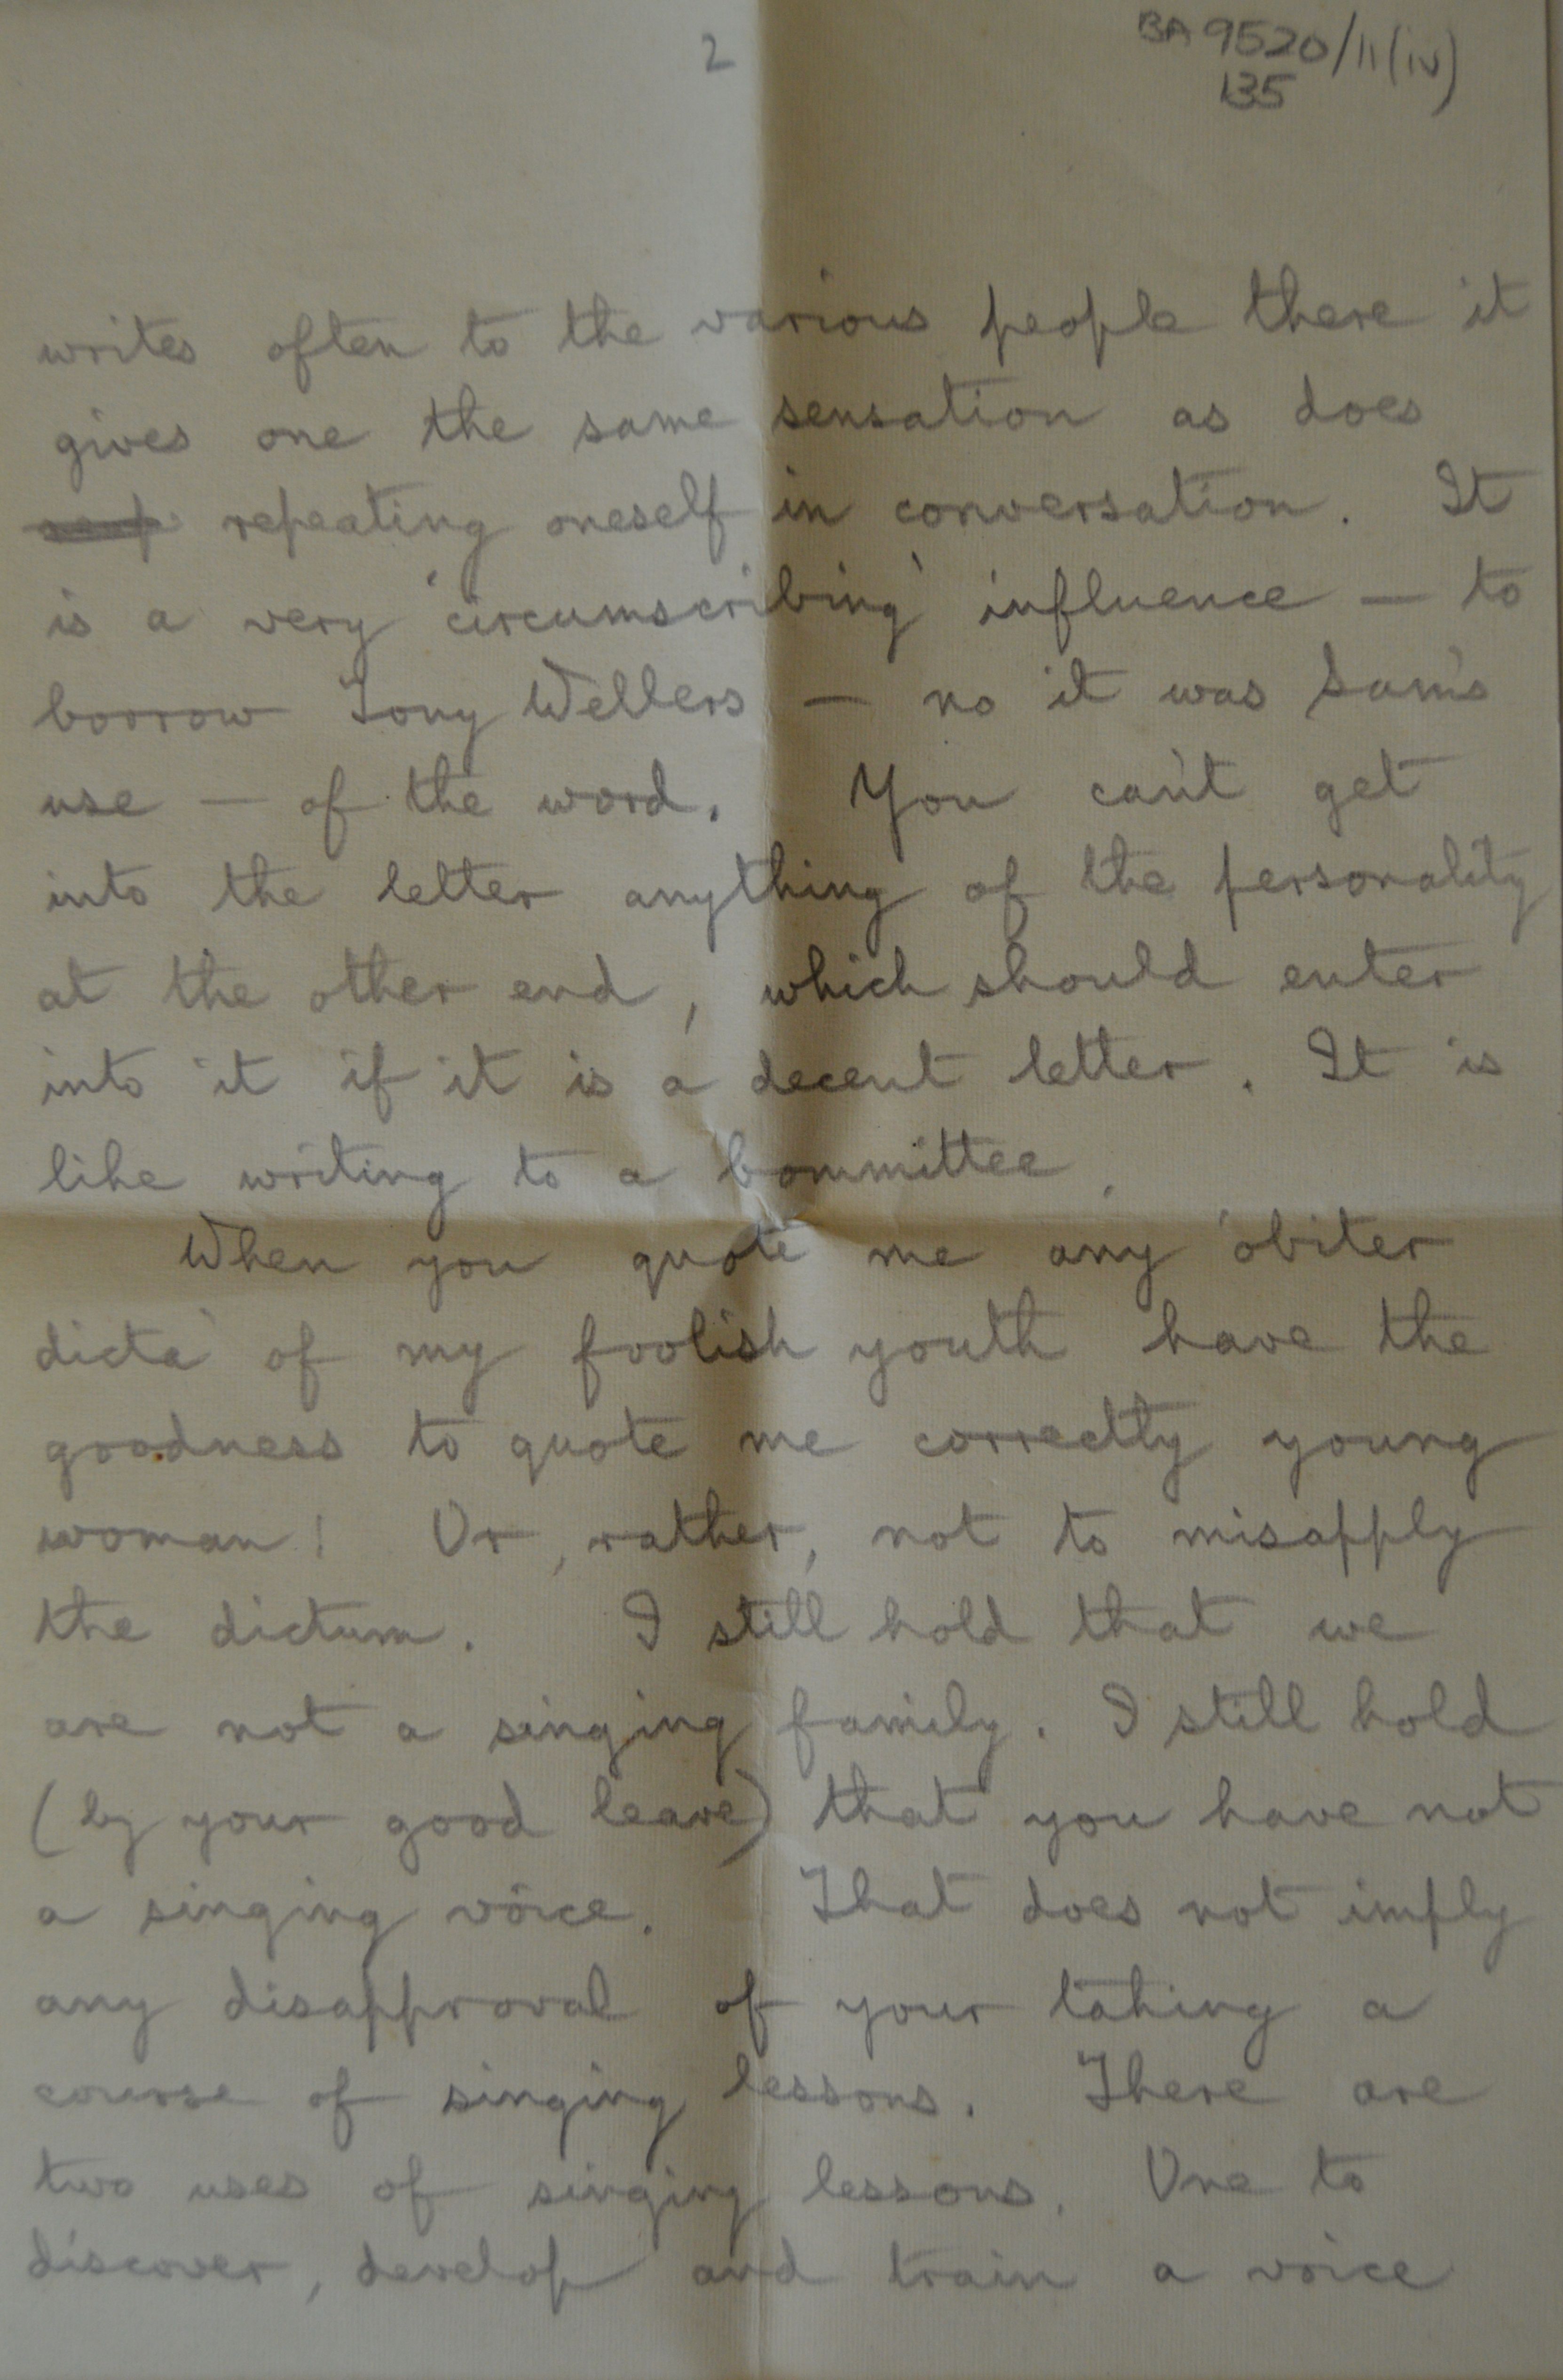 2
BA 9520/11(iv)
135
writes often to the various people there it
gives one the same sensation as does
repeating oneself in conversation. It
is a very 'circumscribing' influence — to
borrow Tony Wellers — no it was Sam's
use — of the word. You can't get
into the letter anything of the personality
at the other end, which should enter
into it if it is a decent letter. It is
like writing to a Committee.
When you quote me any 'obiter
dicta' of my foolish youth have the
goodness to quote me correctly young
woman! Or, rather, not to misapply
the dictum. I still hold that we
are not a singing family. I still hold
(by your good leave) that you have not
a singing voice. That does not imply
any disapproval of your taking a
course of singing lessons. There are
two uses of singing lessons. One to
discover, develop and train a voice